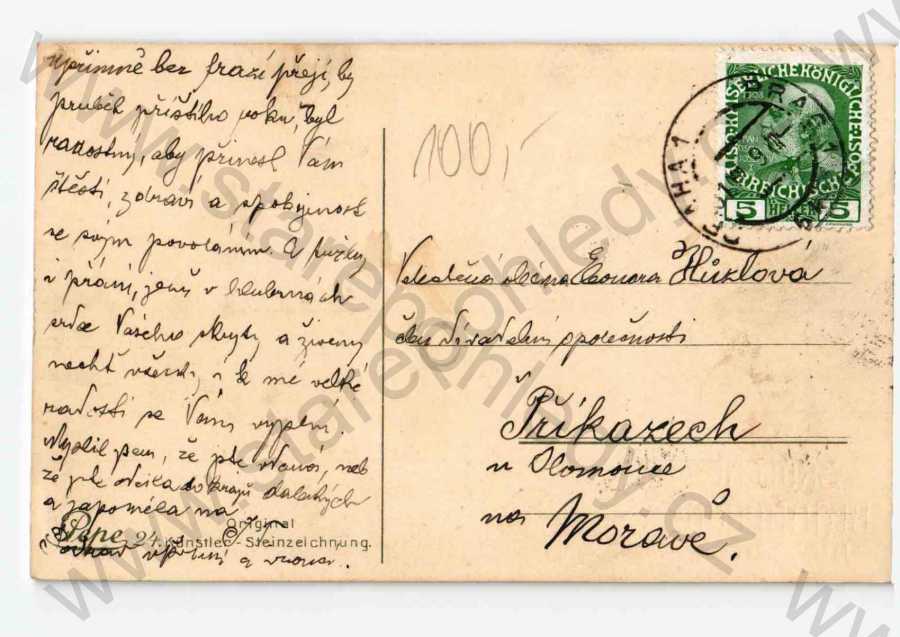 Upřímně bez frazí přeji, by
průběh příštího roku, byl
radostný, aby přinesl Vám
štěstí, zdraví a spokojenost
se svým povoláním. A
i přání, jenž v hlubinách
srdce Vašeho skryty a živeny
nechť všecky i k mé velké
radosti se Vám vyplní.
Myslil jsem, že jste
že jste do krajů dalekých
a zapoměla na
Pepe
Original
24. Künstler-Steinzeichnung.
a
100,-
KAISERLICHE KÖNIGLICHE ÖSTERREICHISCHE
5 HELLER 5
PRAG 1
PRAHA 1
Velectěná slečna Eleonora Hůklová
člen divadelní společnosti
Příkazech
u Olomouce
na Moravě.
www.starepohledy.cz
www.starepohledy.cz